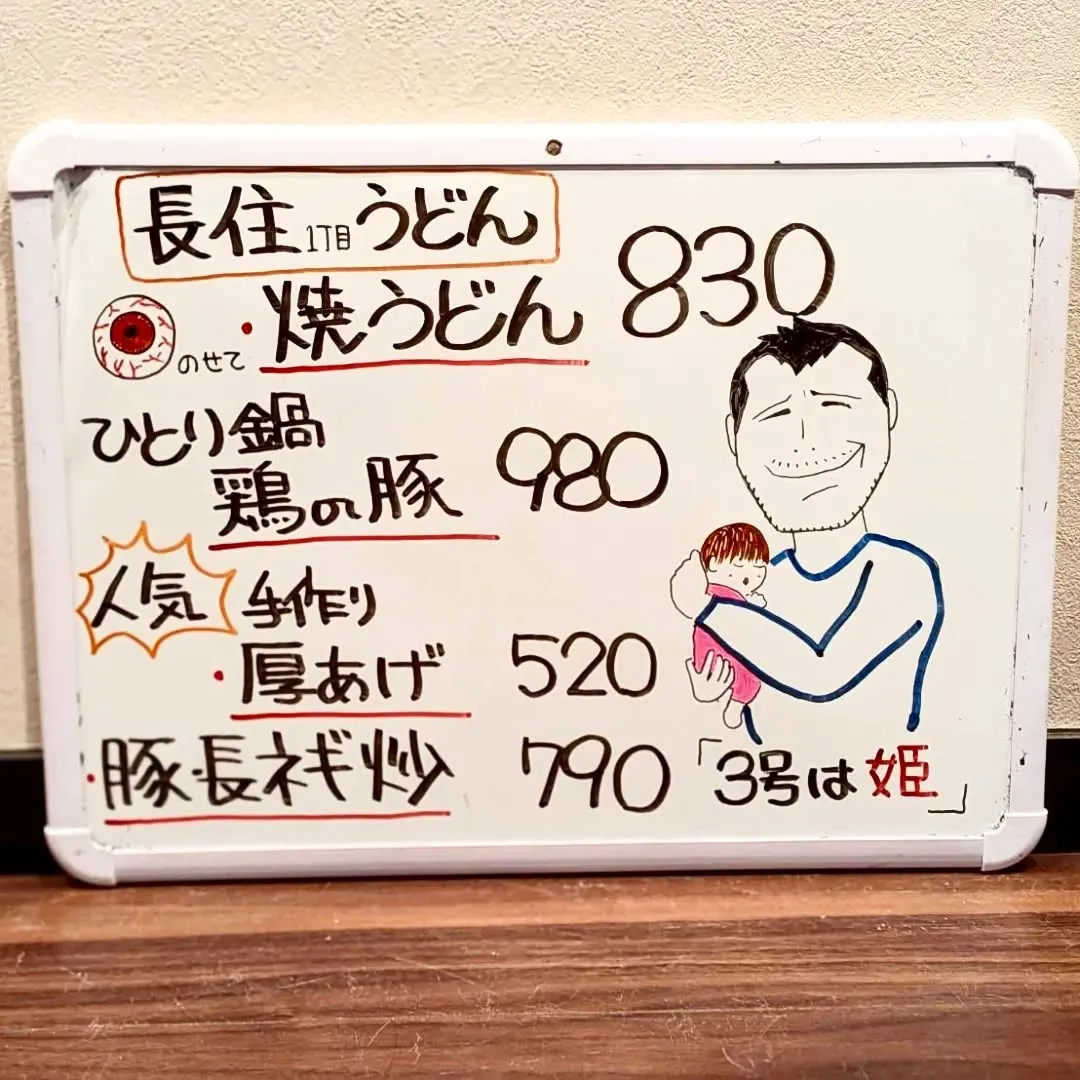 長住1丁目うどん
のせて ・焼うどん 830
ひとり鍋
鶏の豚 980
人気 手作り
・厚あげ 520
・豚・長ネギ炒 790
「3号は姫」